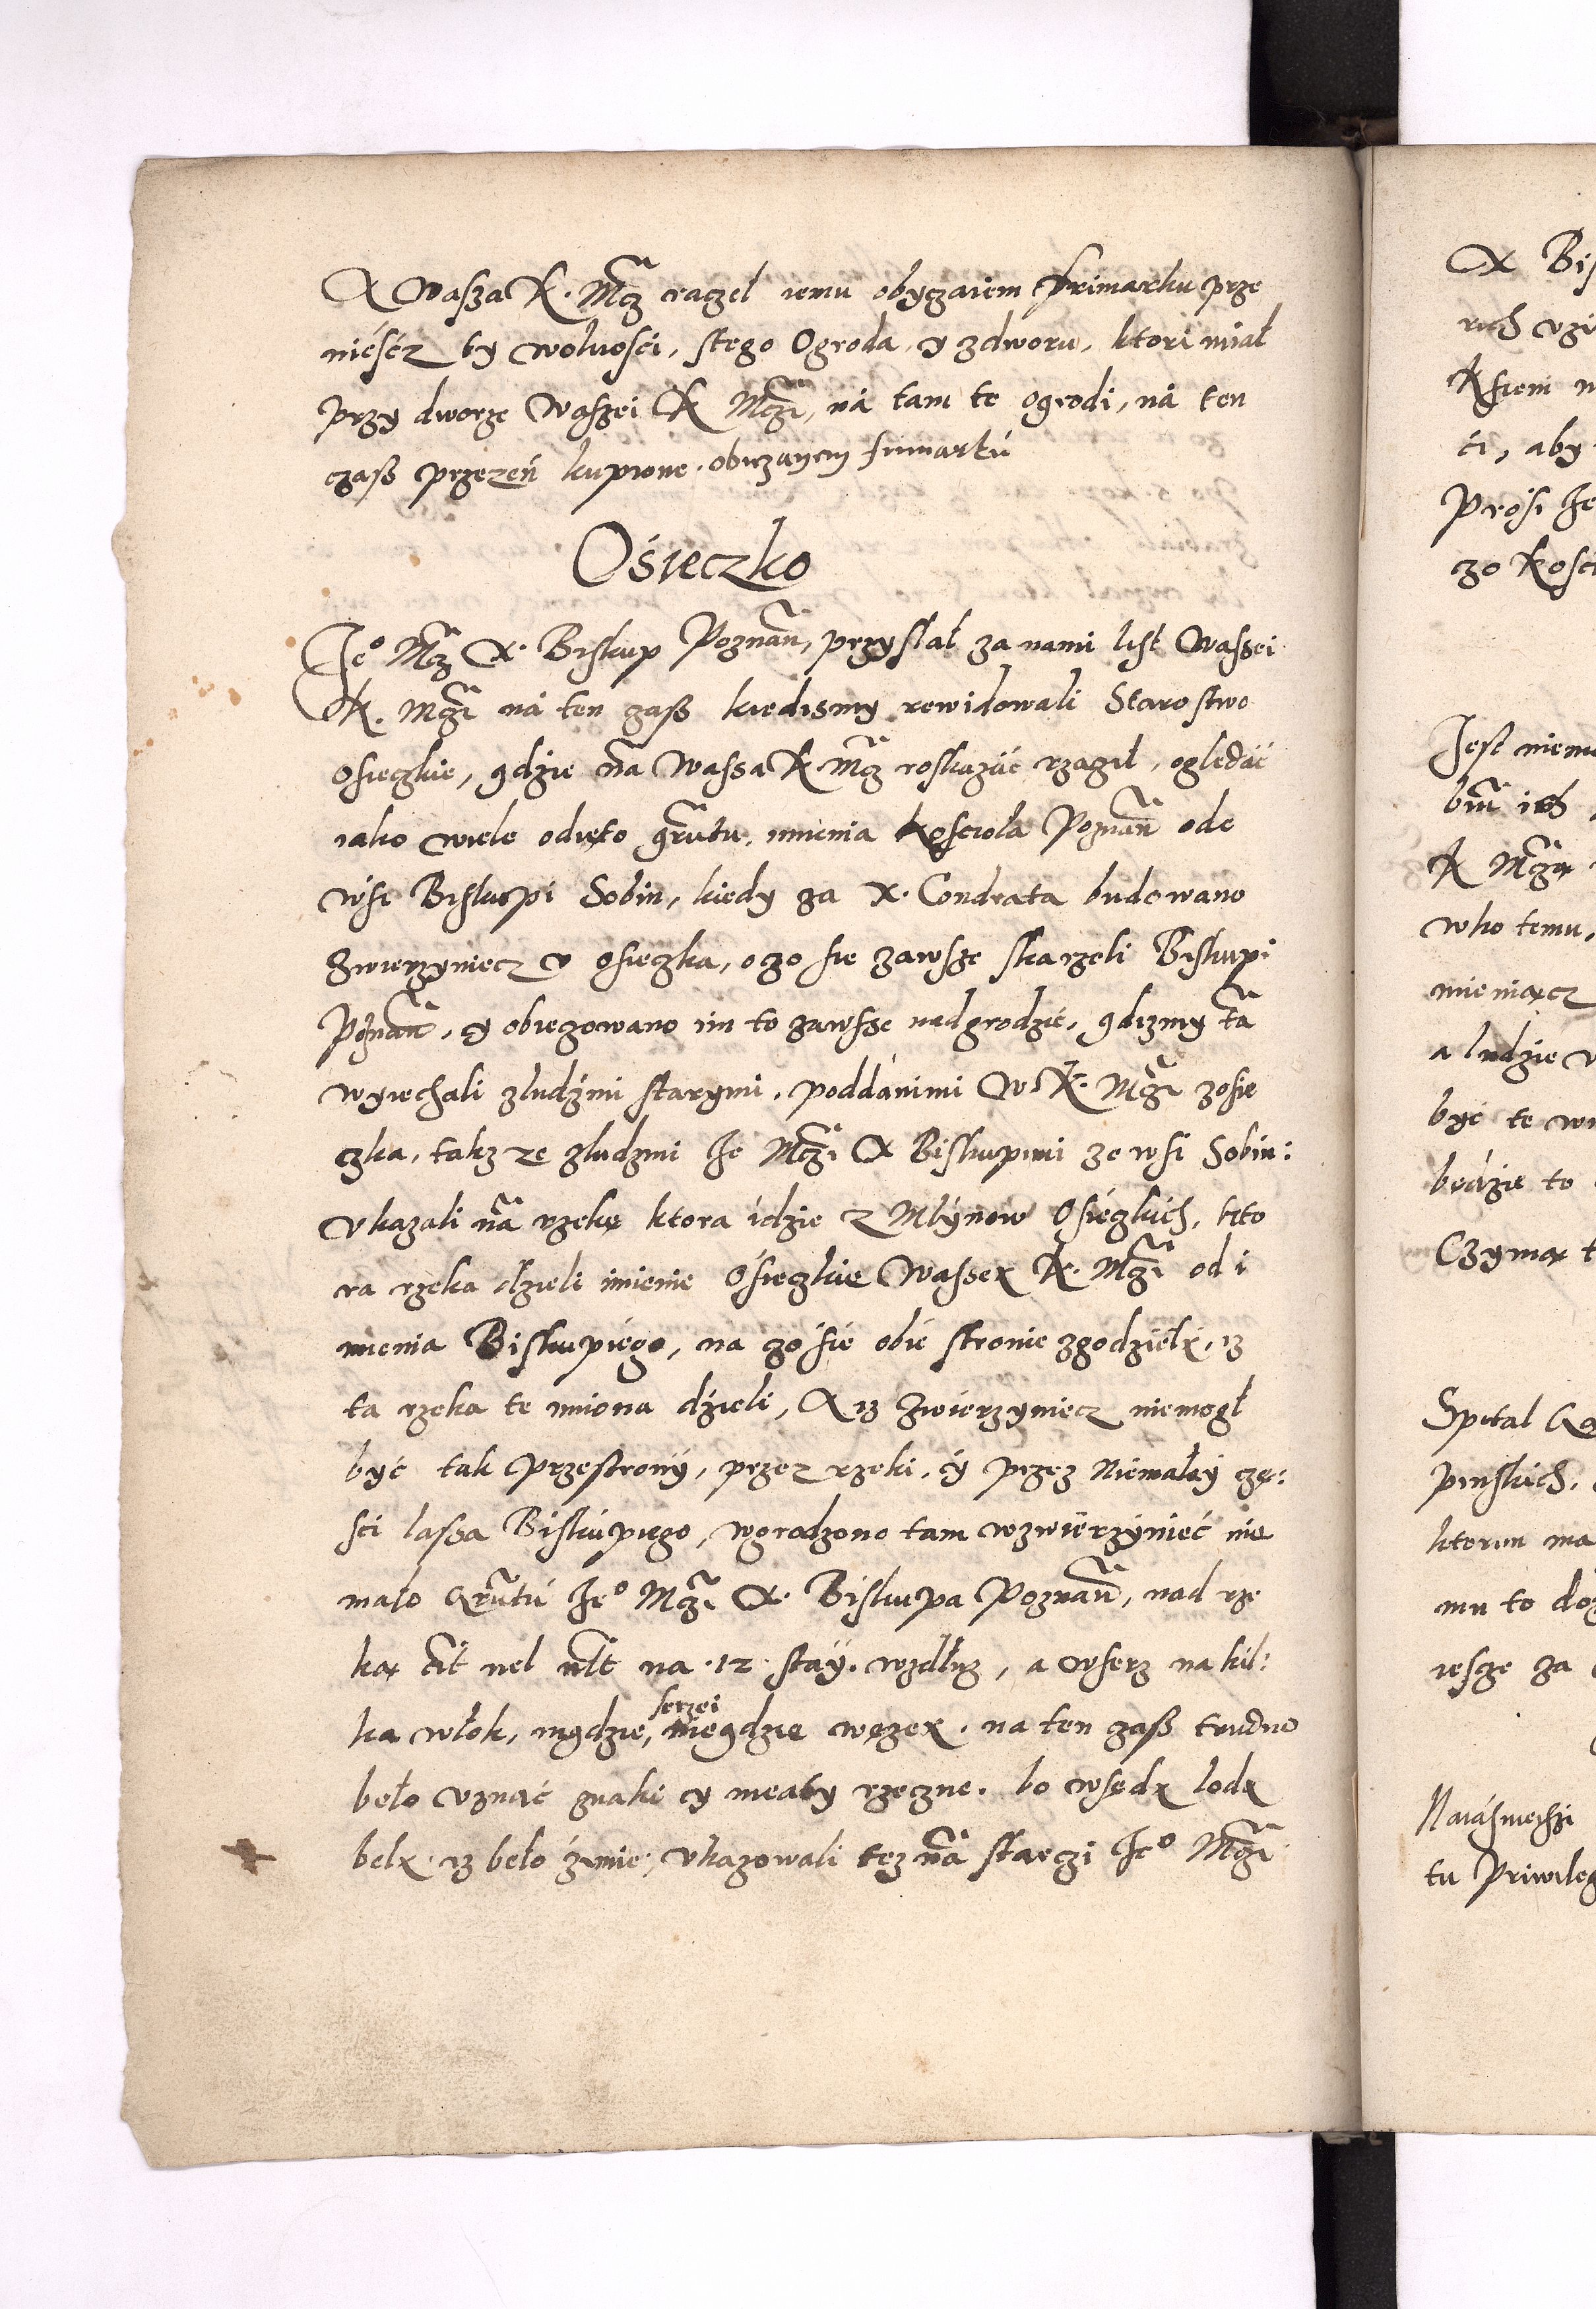 A Wasza K. Mcz raczel iemu obyczaiem frimarku prze
niéścz ty wolnosci, stego Ogroda, y zdworu, ktori mial
przy dworze Waszei K Mczi, ná tam te ogrodi, ná ten
czasz przezeń kupione. obiczayem frimarkú
Ośieczko
Je° Mcz X. Biskup Poznan, przyslal za nami list Wassei
K. Mczi ná ten zasz kiedismy rewidowali Starostwo
Osieczkie, gdzie na Wassa K Mcz roskazác rzaczil, oględác
iako wiele odięto gruntu, imienia Kosciola Poznan ode
wsi Biskupi Sobin, kiedy za X. Condrata budowano
Zwierzyniecz v Osieczka, oczo sie zawsze skarzeli Biskupi
Poznan, y obieczowano im to zawsse nadgrodzić, gdizmy ta
wyiechali zludźmi starymi, poddánimi W. K. Mczi zosie
czka, takz ze zludzmi Je Mczi X Biskupimi ze wsi Sobin:
Vkazali na rzekę ktora idzie z Mlynow Osieczkich, kto
ra rzeka dzieli imienie Osieczkie Wassey K. Mczi od i
mienia Biskupiego, na czo sie obie stronie zgodzieli, iz
ta rzeka te imiona dzieli, A iz zwierzyniecz niemogl
być tak przestrony, przez rzeki, y przez Niemaley czę:
sci lassa Biskupiego, wgrodzono tam wzwierzyniec nie
malo Gruntu Je° Mczi X. Biskupa Poznan, nad rze
ką na 12 stay. wzdluz, a wserz na kil:
ka wlok, ingdzie, serzei niegdzie węzey. na ten czasz trudno
belo vznać znaki y meaty rzeczne. bo wsędy lody
bely. iz belo źimie; vkazowali tez na starczi Je° Mczi
A Bis
rich vzi
Ksieni n
ci, aby
Prosi Je
czo Kosci
Jest niemu
K Mczią
wko temu,
mieniącz
a ludzie v
być te wi
bedzie to
Czymą t
Spital
pinskich,
ktorim ma
mu to
iescze za
Naiásnieszi
tu Priwileg